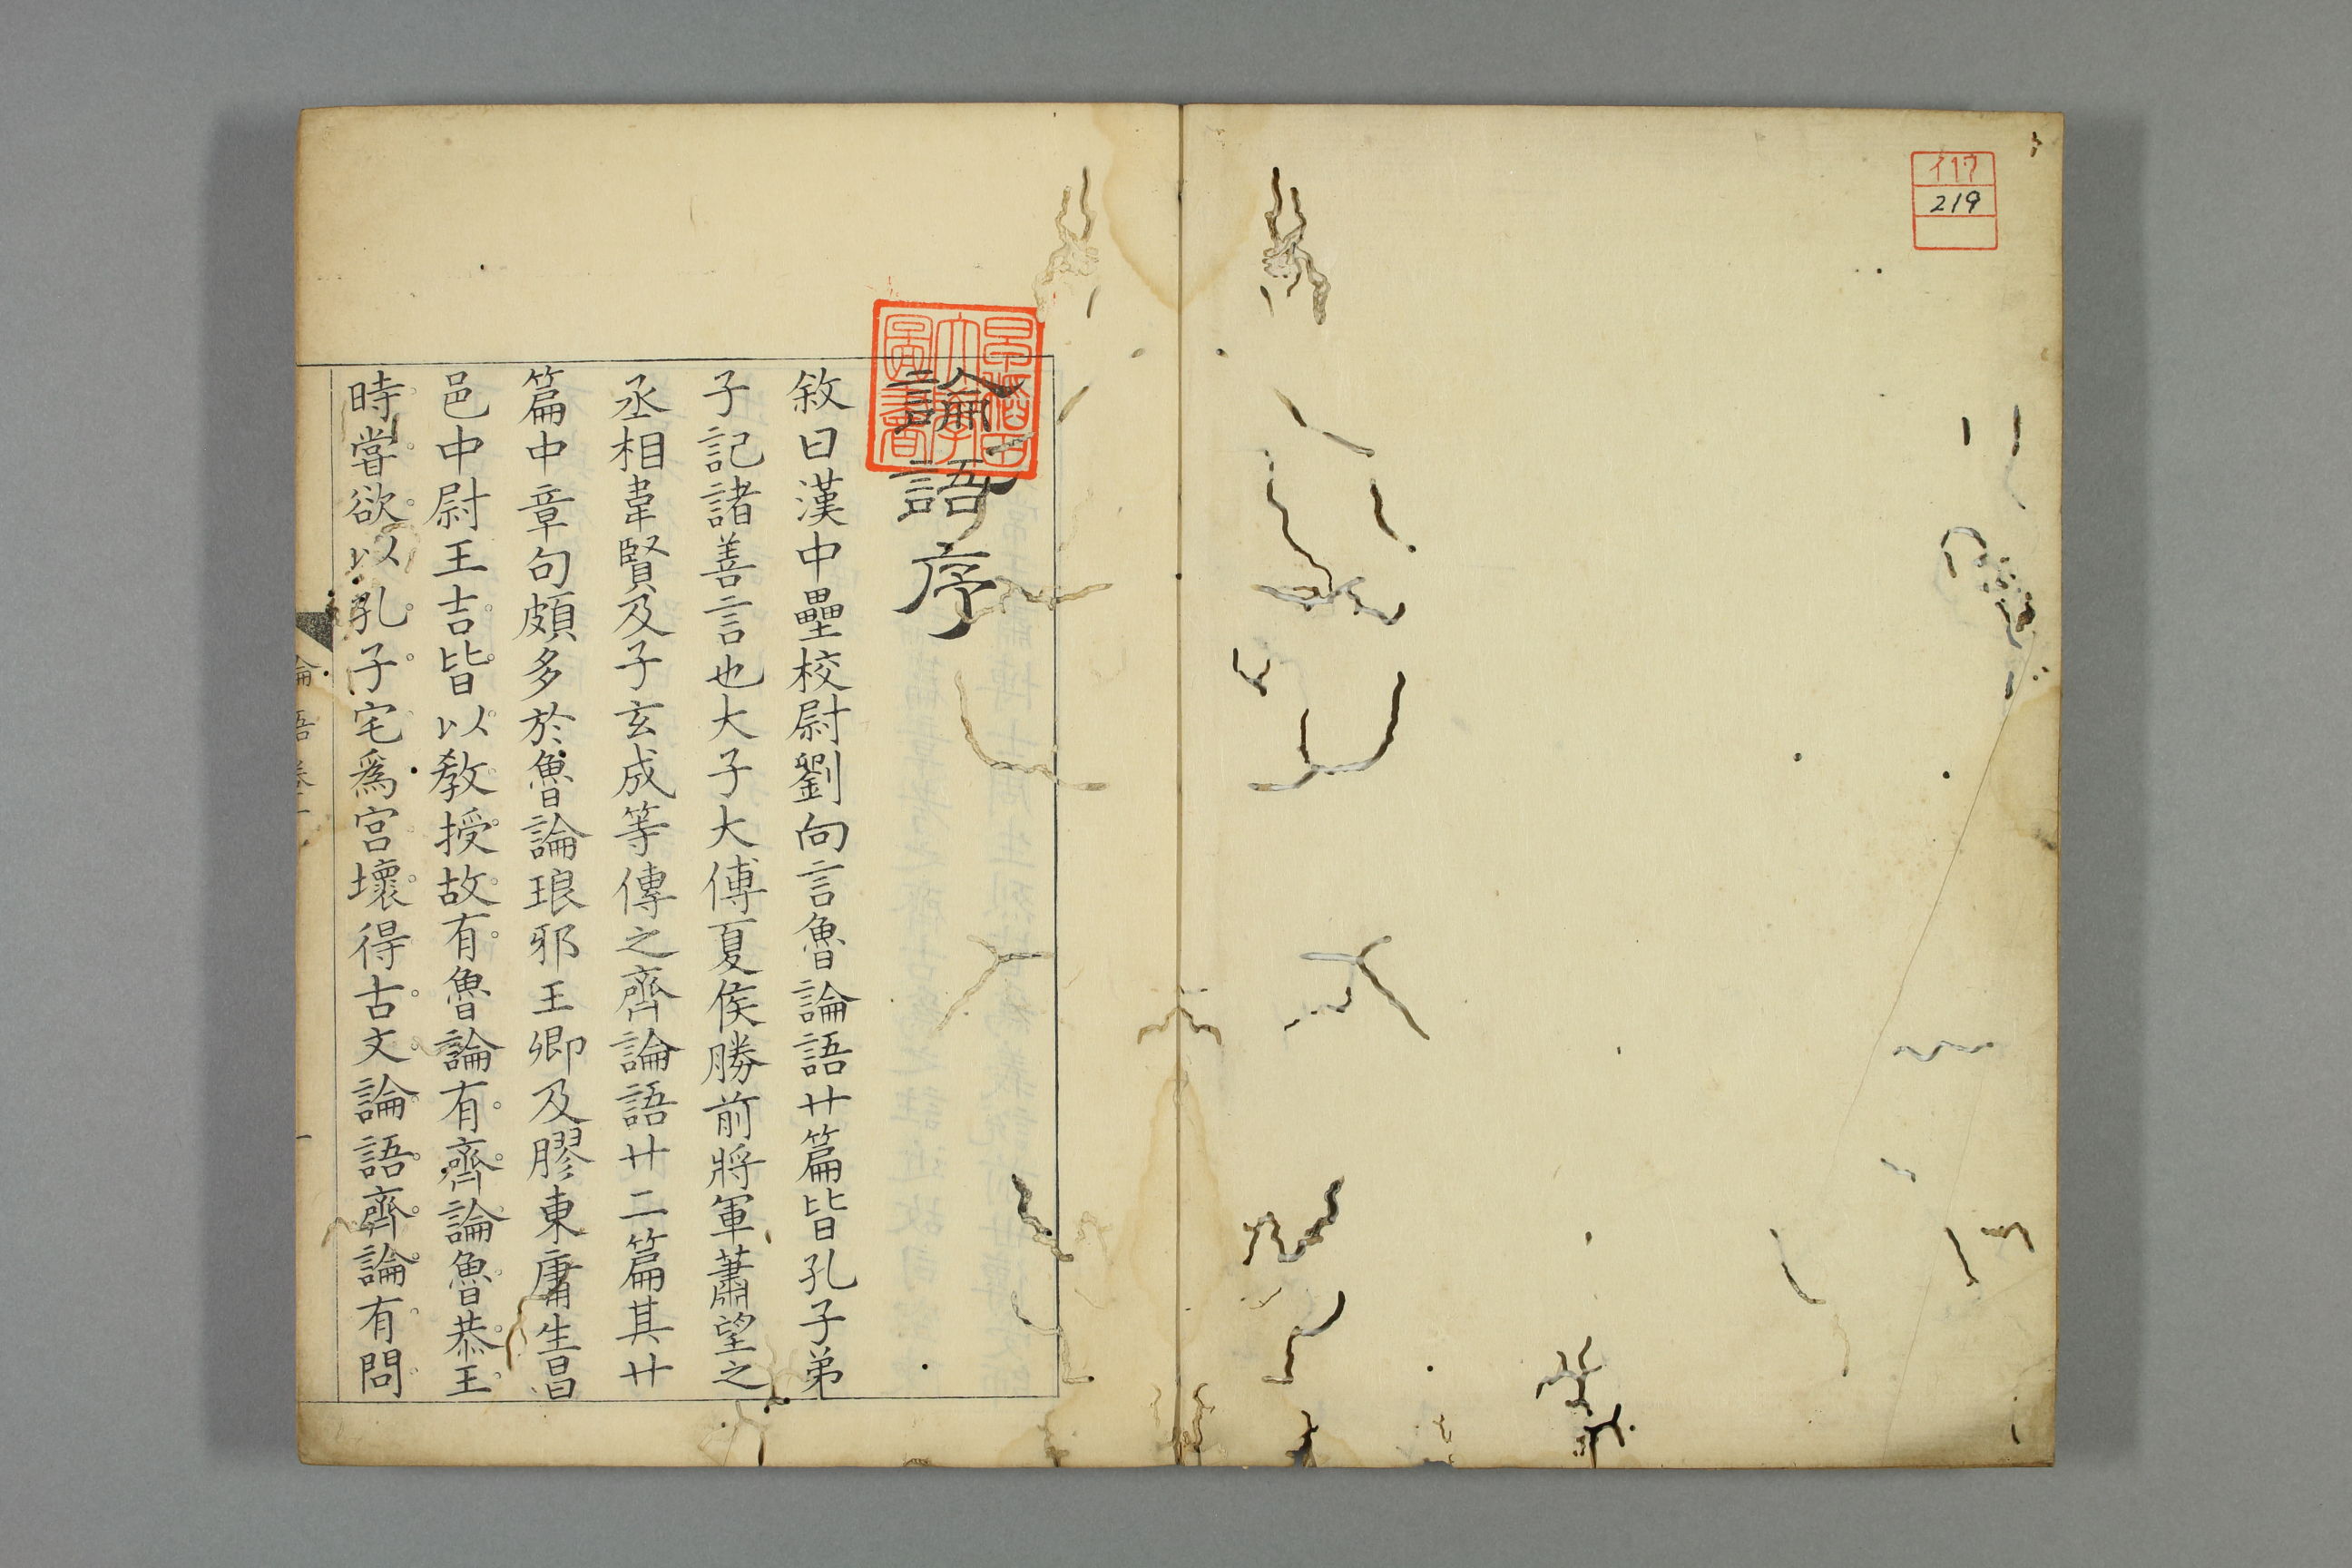 イ17
219
早稲田
大學
圖書
論語序
敘曰漢中壘校尉劉向言魯論語廿篇皆孔子弟
子記諸善言也大子大傅夏侯勝前將軍蕭望之
丞相韋賢及子玄成等傳之齊論語廿二篇其廿
篇中章句頗多於魯論琅邪王卿及膠東庸生昌
邑中尉王吉皆以教授故有魯論有齊論魯恭王
時嘗欲以孔子宅爲宮壞得古文論語齊論有問
論語卷一
一